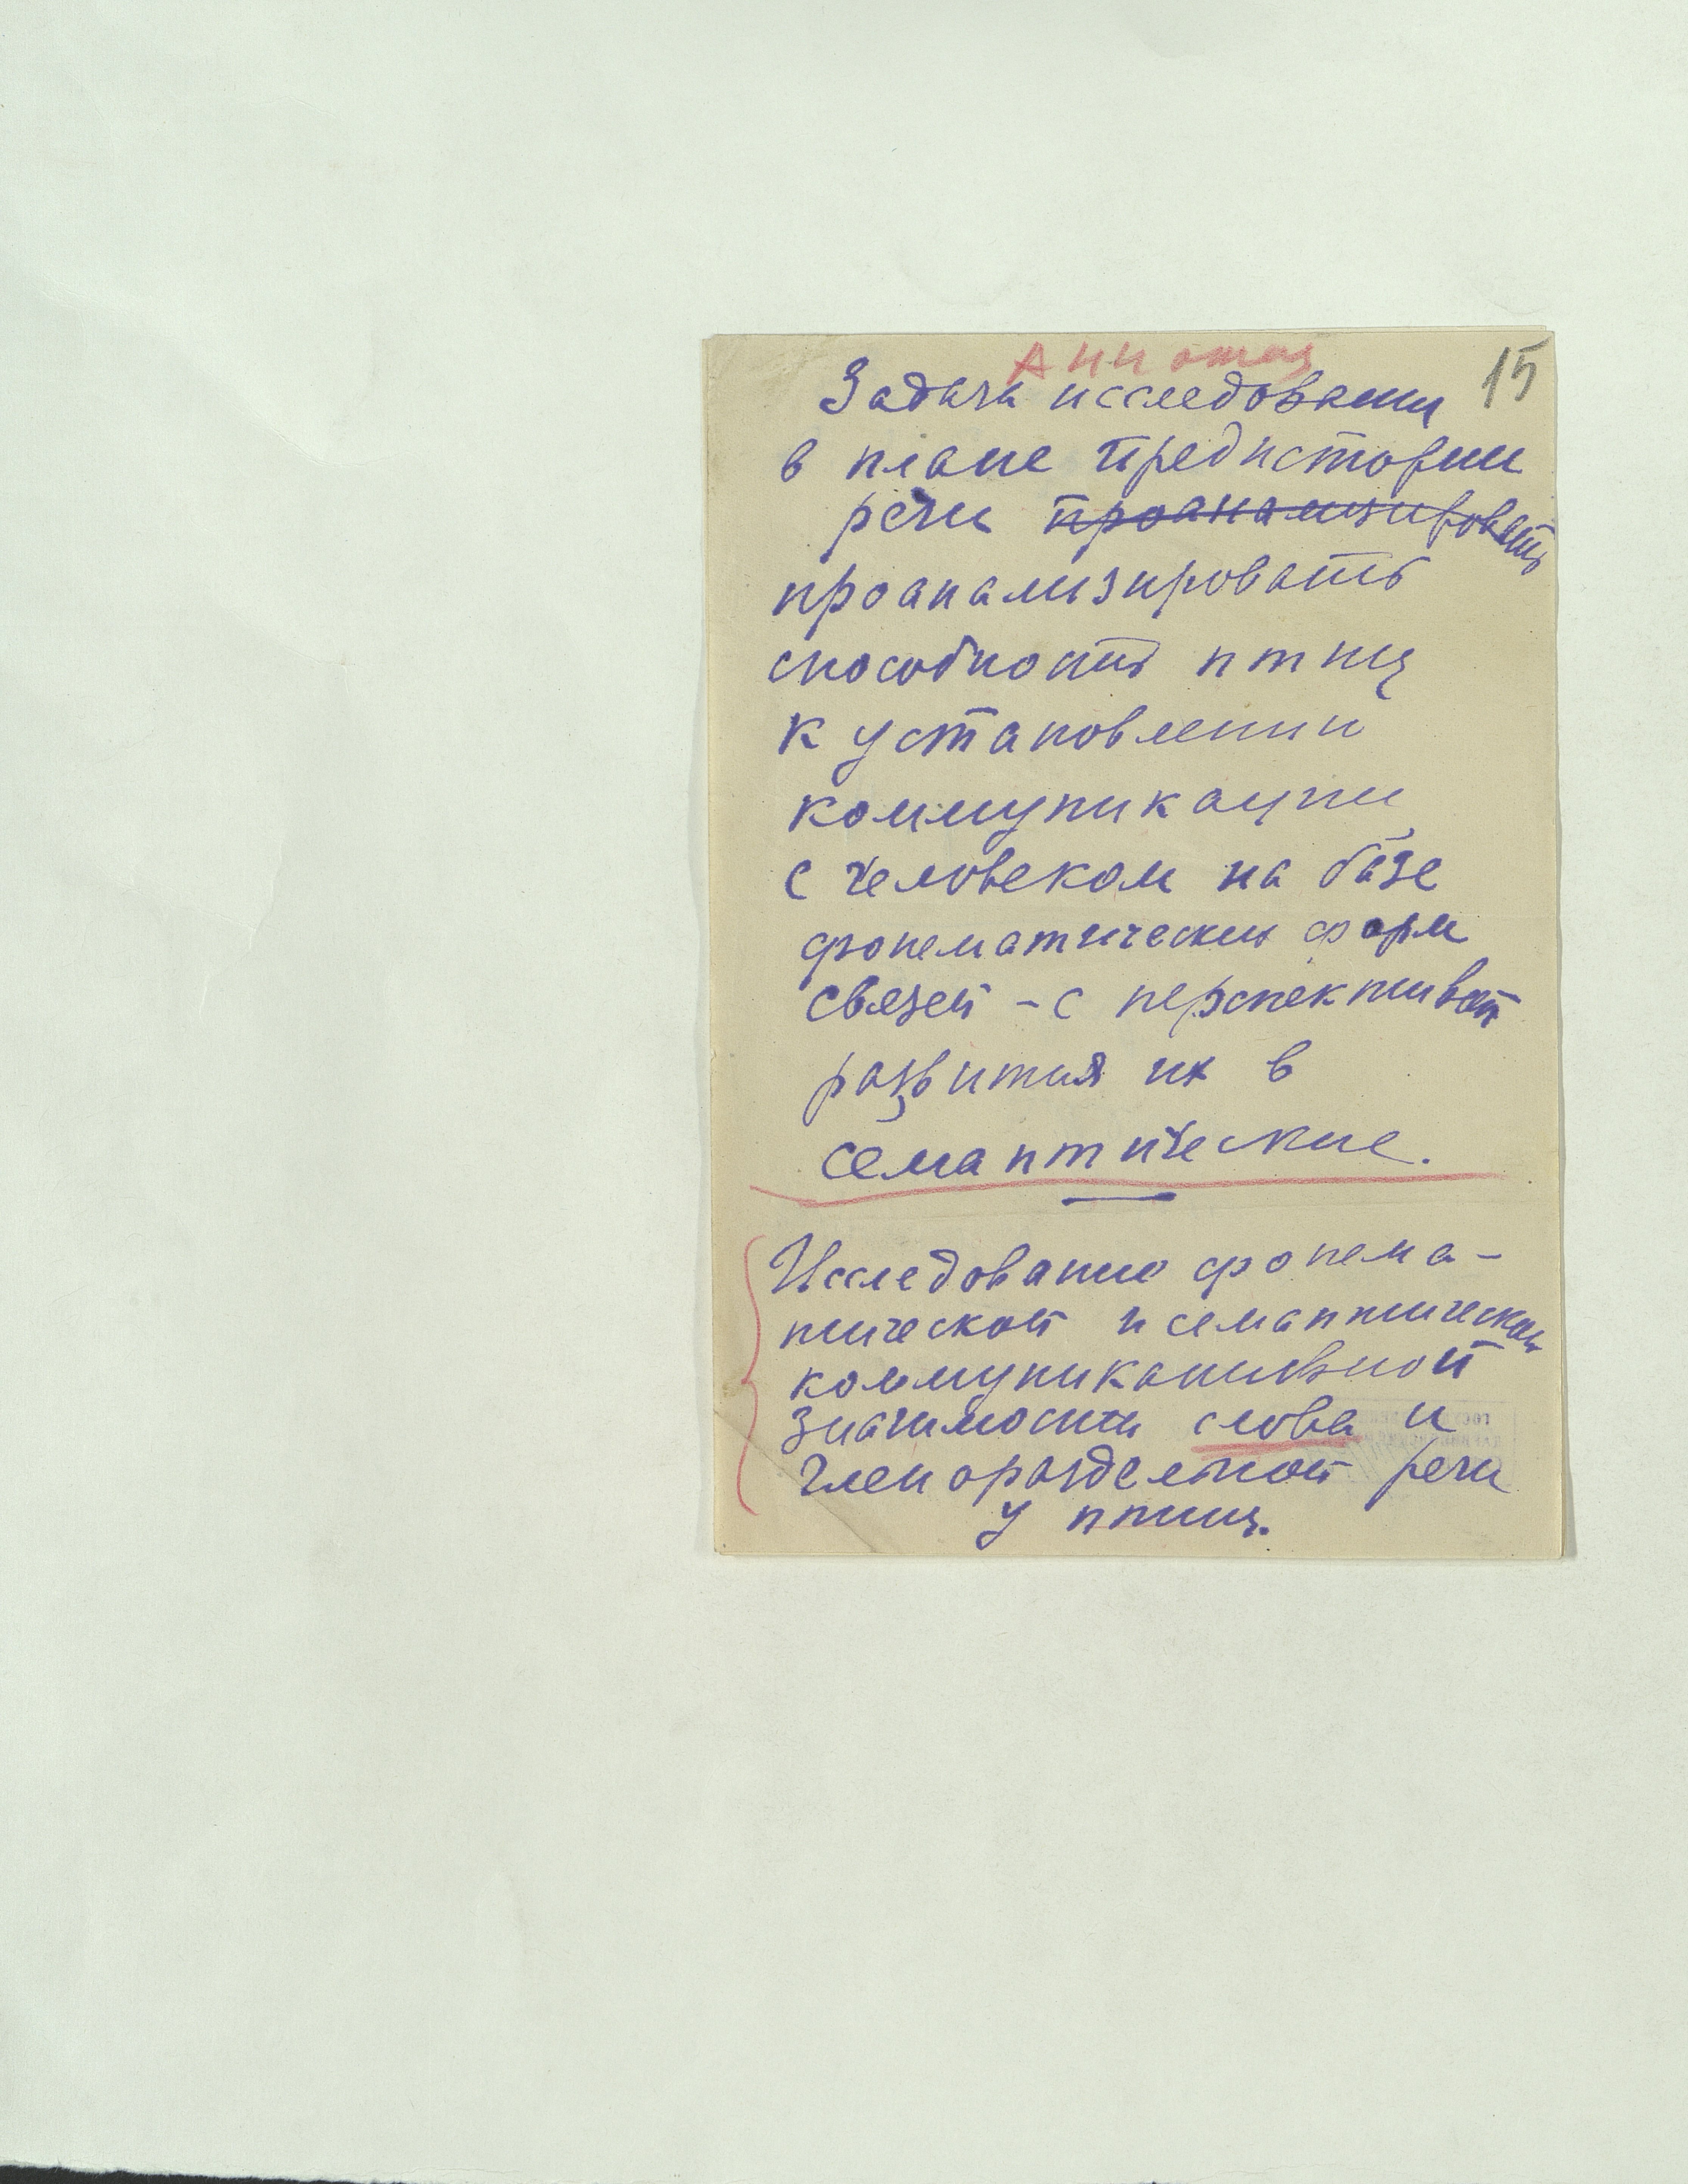 15
Задача исследования
в плане предистории
речи проанализировать
проанализировать
способность птиц
к установлению
коммуникации
с человеком на базе
фонематических форм
связей – с перспективой
развития их в
семантические.
Исследование фонема-
тической и семантической
коммуникативной
значимости слова и
членораздельной речи
у птиц.